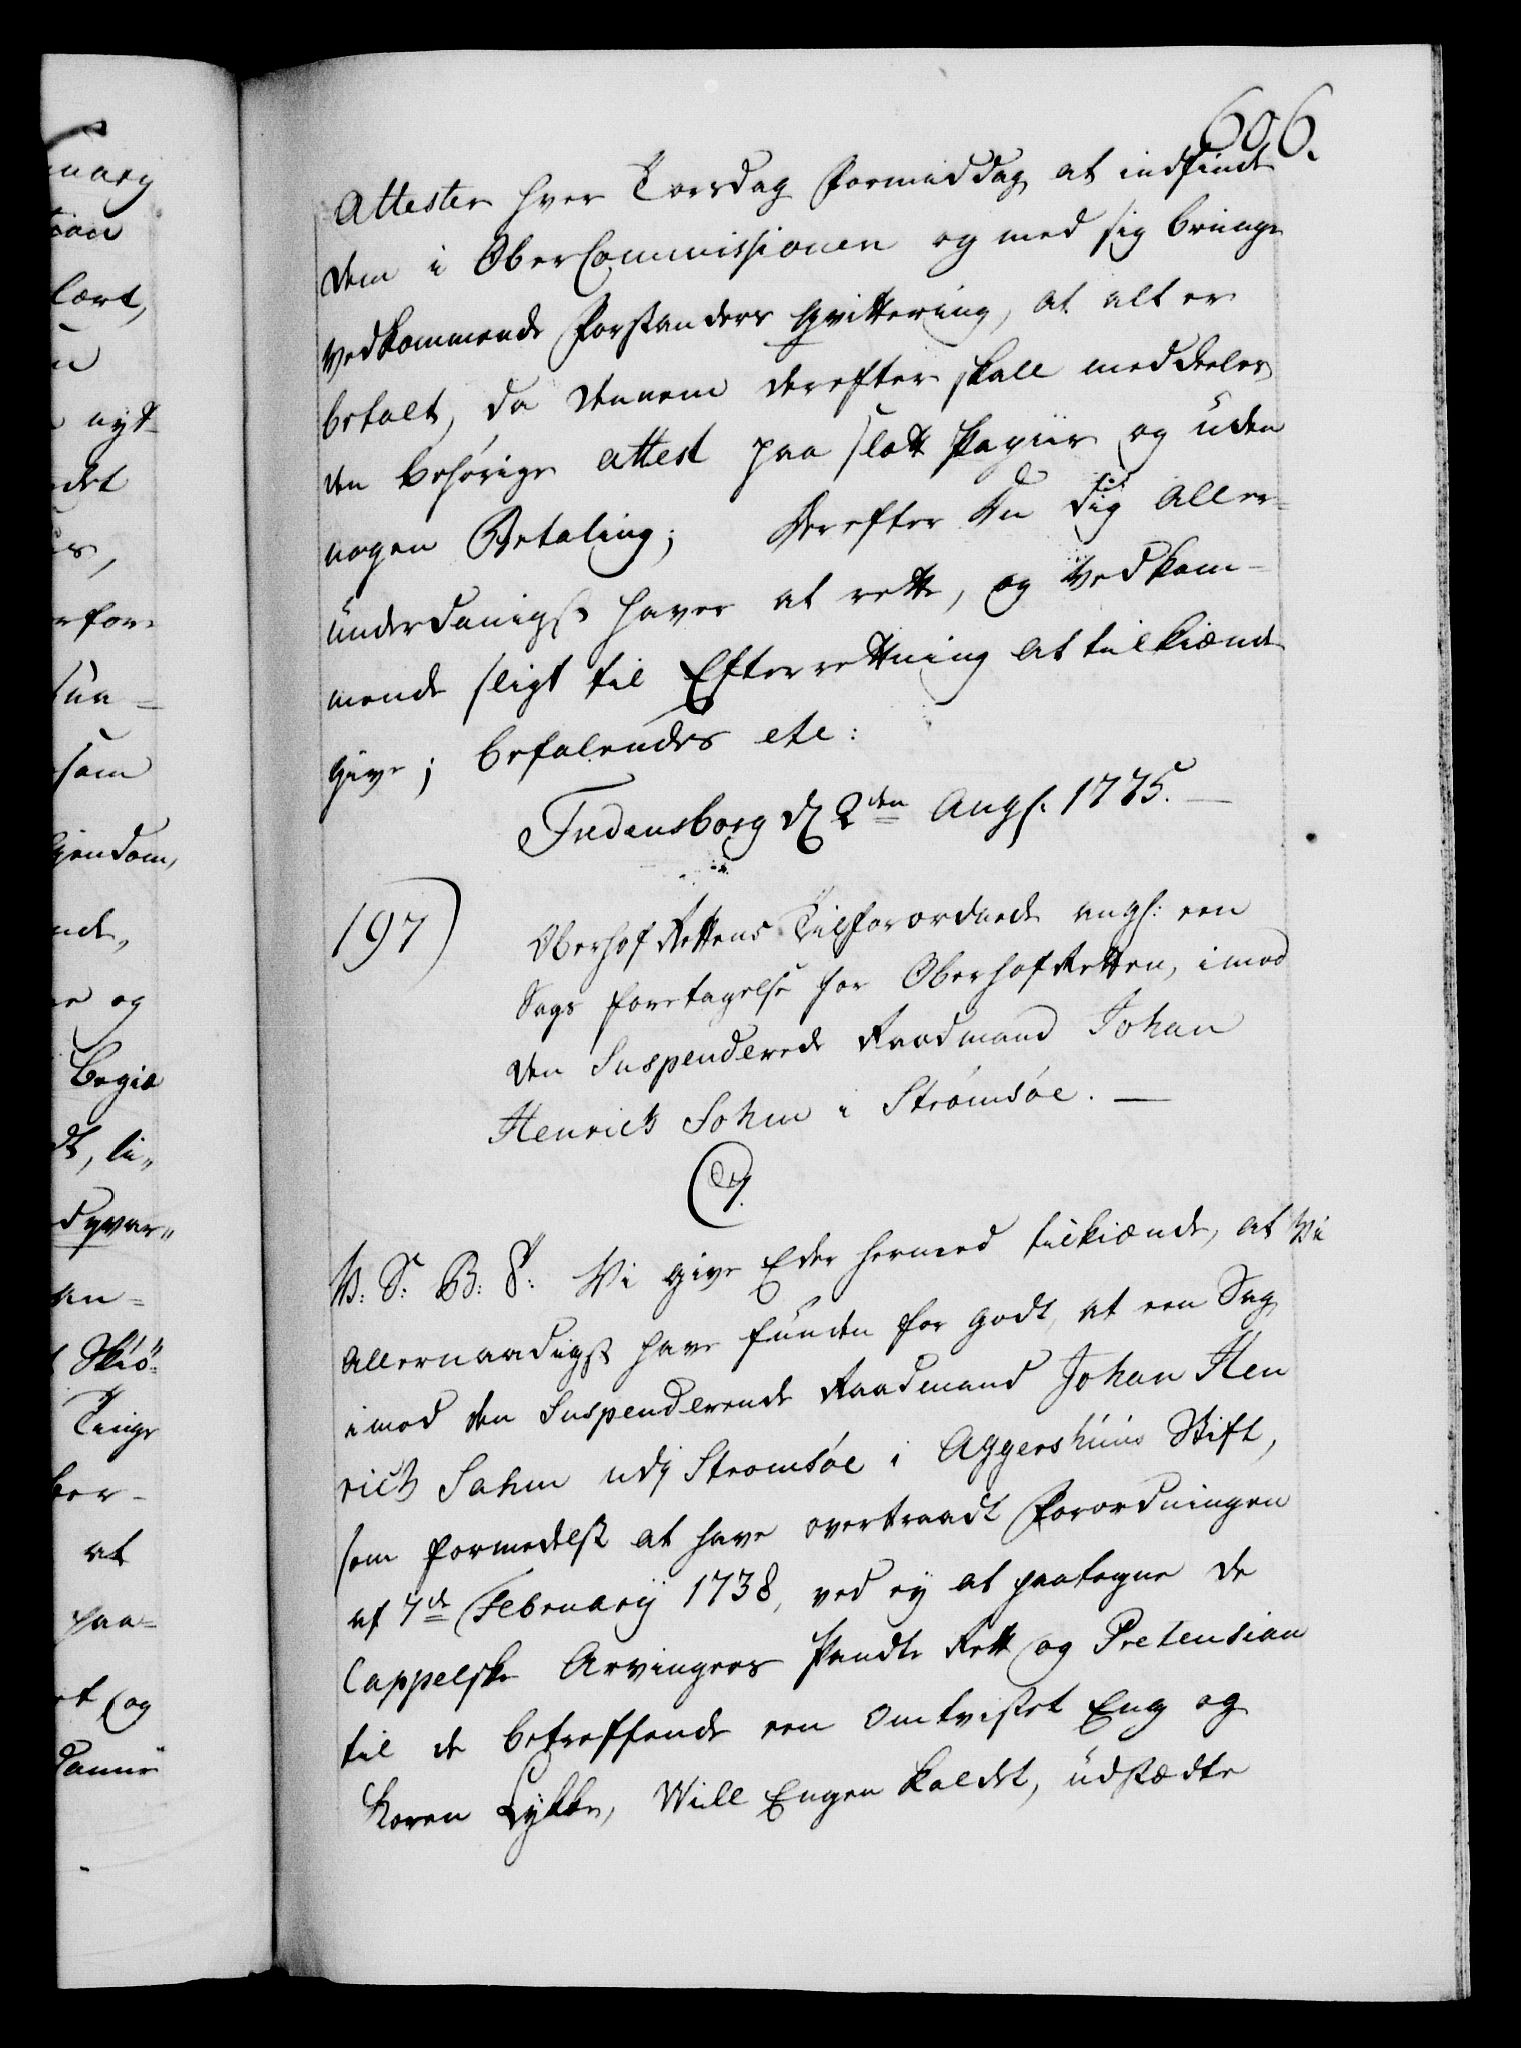 606.
Attester hver Torsdag Formiddag at indfinde
dem i OberCommissionen og med sig bringe
vedkommende Forstanders Qvittering, at alt er
betalt, da dennem derefter skall meddeeles
den behörige attest paa slet Papiir og uden
nogen Betaling; Derefter Du dig aller-
underdanigst haver at rette, og vedkom-
mende sligt til Efterretning at tilkiende
give; befalendes etc:
Fredensborg d 2den Augs. 1775.
197) OberhofRettens Tilforordnede angl: een
Sags foretagelse for OberhofRetten, imod
den Suspenderede Raadmand Johan
Henrich Sohm i Strømsöe.
V. S. B. G: Vi give Eder hermed tilkiende, at Vi
Allernaadigst have funden for godt, at een Sag
imod den Suspenderende Raadmand Johan Hen
rich Sahm udj Stromsöe i Aggershuus Stift,
som formedelst at have overtraadt Forordningen
af 7de February 1738, ved ey at paategne de
Cappelske Arvingers Pandte Rett og Prætension
til de betreffende een omtvistet Eng og
Haven Lykke, Will Engen kaldet, udstædte
naey
lært,
n
nyt-
edet
som
Ejendom,
ende,
re og
Begiæ
dt, li„
an-
Skiö-
Tinge
ber-
at
paa-
et og